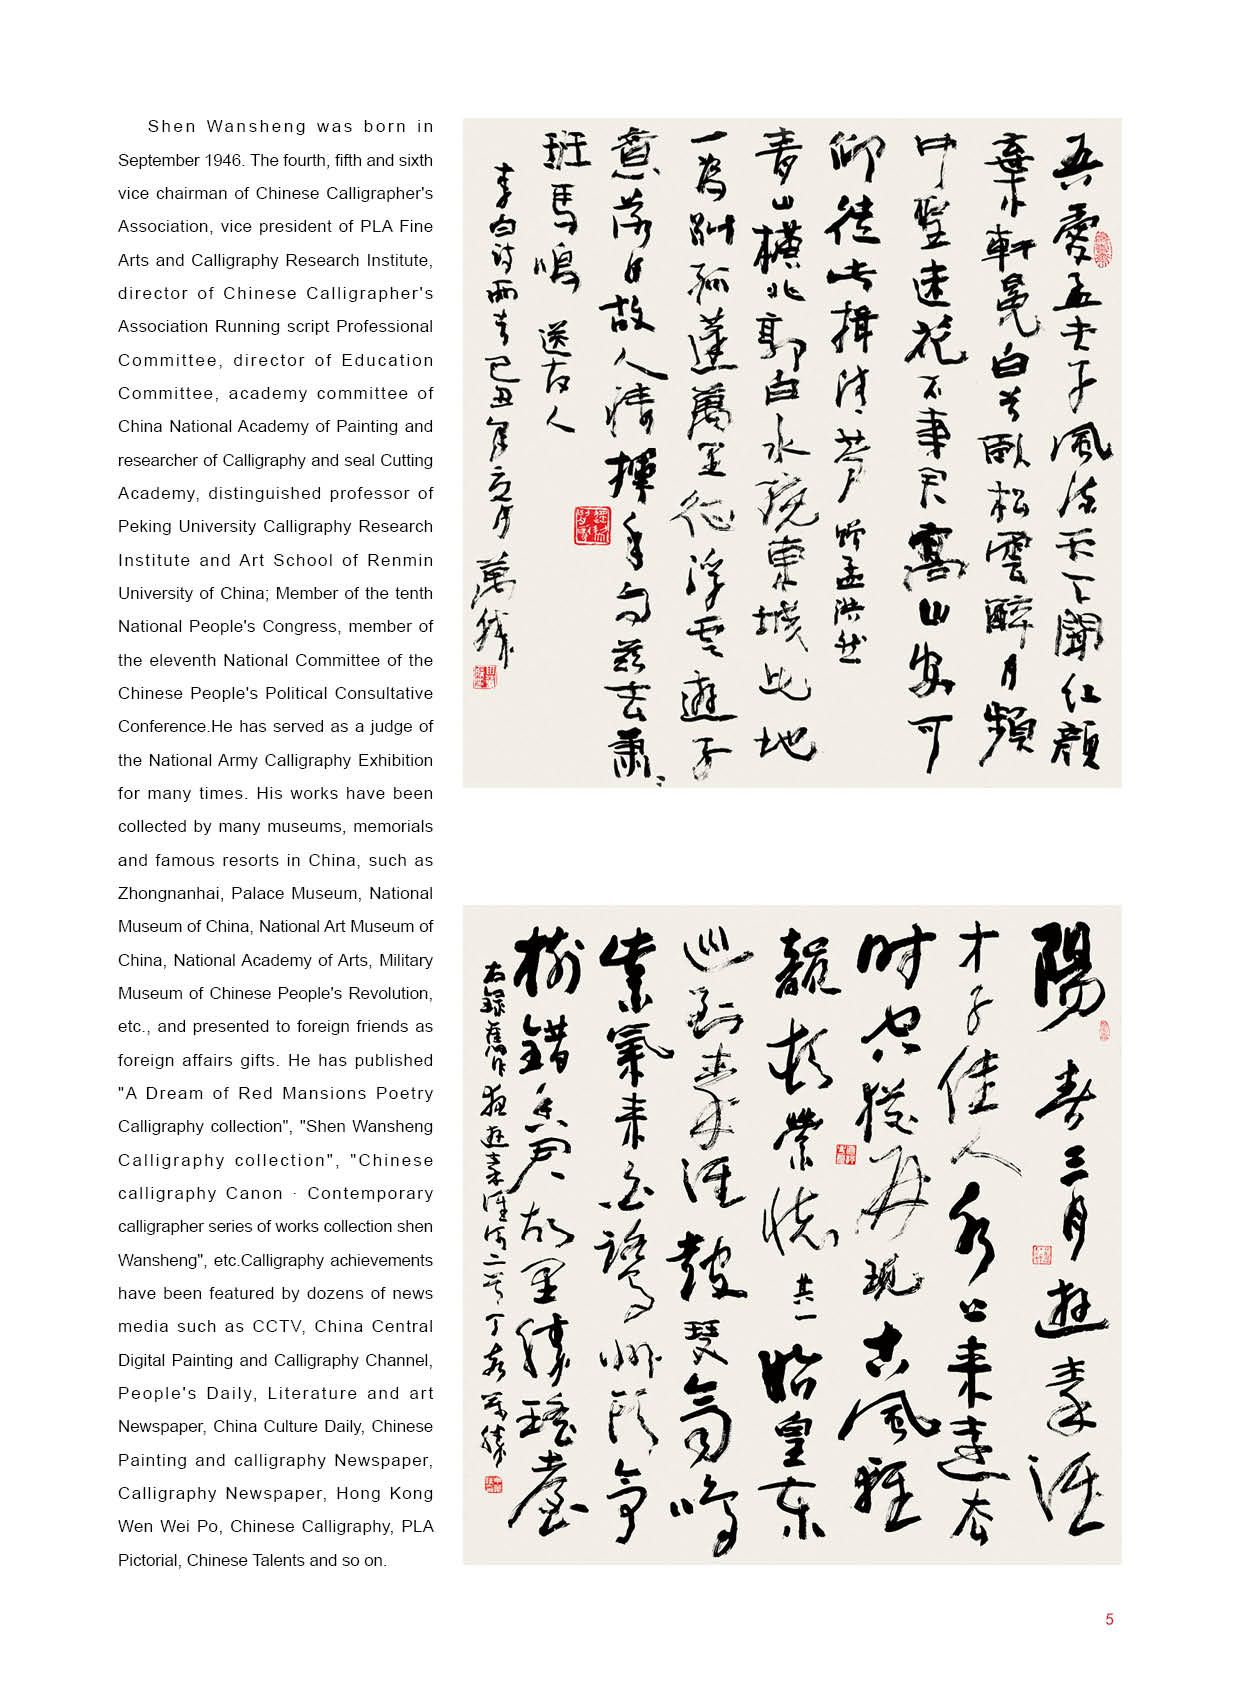 Shen Wansheng was born in
September 1946. The fourth, fifth and sixth
vice chairman of Chinese Calligrapher's
Association, vice president of PLA Fine
Arts and Calligraphy Research Institute,
director of Chinese Calligrapher's
Association Running script Professional
Committee, director of Education
Committee, academy committee of
China National Academy of Painting and
researcher of Calligraphy and seal Cutting
Academy, distinguished professor of
Peking University Calligraphy Research
Institute and Art School of Renmin
University of China; Member of the tenth
National People's Congress, member of
the eleventh National Committee of the
Chinese People's Political Consultative
Conference.He has served as a judge of
the National Army Calligraphy Exhibition
for many times. His works have been
collected by many museums, memorials
and famous resorts in China, such as
Zhongnanhai, Palace Museum, National
Museum of China, National Art Museum of
China, National Academy of Arts, Military
Museum of Chinese People's Revolution,
etc., and presented to foreign friends as
foreign affairs gifts. He has published
"A Dream of Red Mansions Poetry
Calligraphy collection", "Shen Wansheng
Calligraphy collection", "Chinese
calligraphy Canon · Contemporary
calligrapher series of works collection shen
Wansheng", etc.Calligraphy achievements
have been featured by dozens of news
media such as CCTV, China Central
Digital Painting and Calligraphy Channel,
People's Daily, Literature and art
Newspaper, China Culture Daily, Chinese
Painting and calligraphy Newspaper,
Calligraphy Newspaper, Hong Kong
Wen Wei Po, Chinese Calligraphy, PLA
Pictorial, Chinese Talents and so on.
吾愛孟夫子風流天下聞紅顏
棄軒冕白首臥松雲醉月頻
中聖迷花不事君高山安可
仰徒此揖清芬 贈孟浩然
青山橫北郭白水繞東城此地
一為別孤蓬萬里征浮雲遊子
意落日故人情揮手自茲去蕭〻
班馬鳴 送友人
李白詩兩首己丑年夏月 萬勝
陽春三月遊秦淮
才子佳人
時空 再現古風雅
其一 始皇東
巡到秦淮鼓琴 鳴
紫氣來 鷺洲頭爭
樹錯 君故里 瑤臺
右錄舊作 遊秦淮河二首 丁亥 萬勝
5